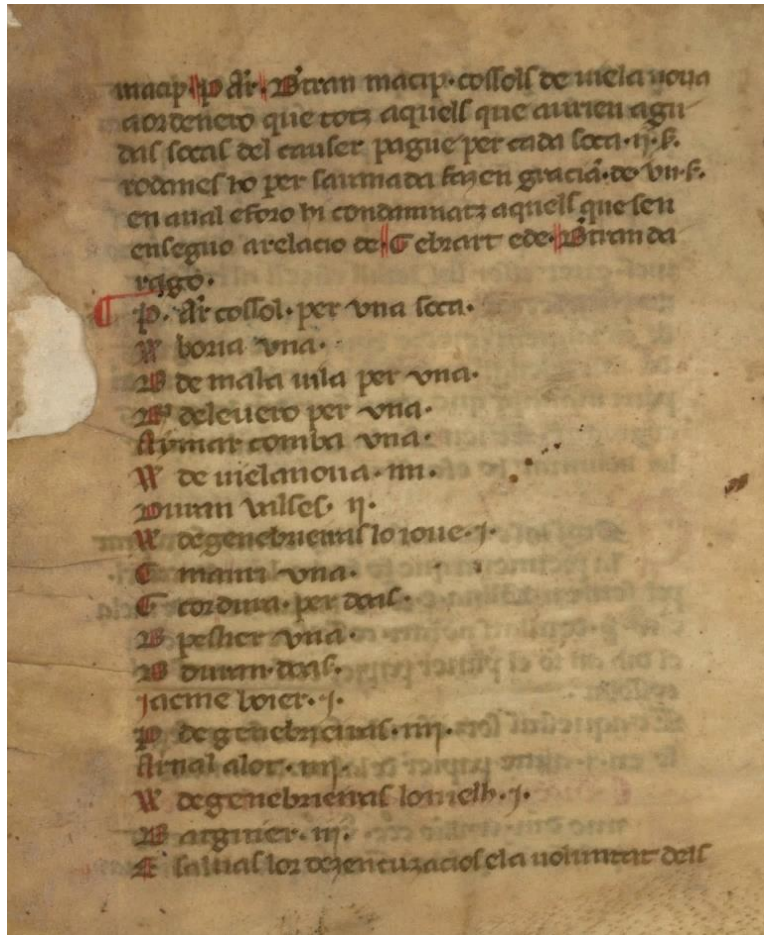 macip. P. Ar. B'tran macip. cossols de viela nova
aordenero que totz aquels que aurien agu
das socas del causer pague per cada soca .ii. s.
rodanes ho per saumada fazen gracia. de vii. s.
en aual e foro hi condamnatz aquels que sen
enseguo a relacio de G ebrart e de B'tran da
rago.
P. Ar cossol. per vna soca.
W boria vna.
B de mala vila per vna.
B deleuero per vna.
Aymar comba vna.
W de vielanova. iiii.
Duran valses. ii.
W de genebrieiras lo iove. j.
G mauri vna.
G cordura. per doas.
B peshier vna.
B duran doas.
Jacme boier. j.
P de genebrieiras. iiij.
Arnal alor. iiij.
W de genebrieiras lo vielh. j.
B arguier. iij.
E salvas lor dezencuzacios e la voluntat dels